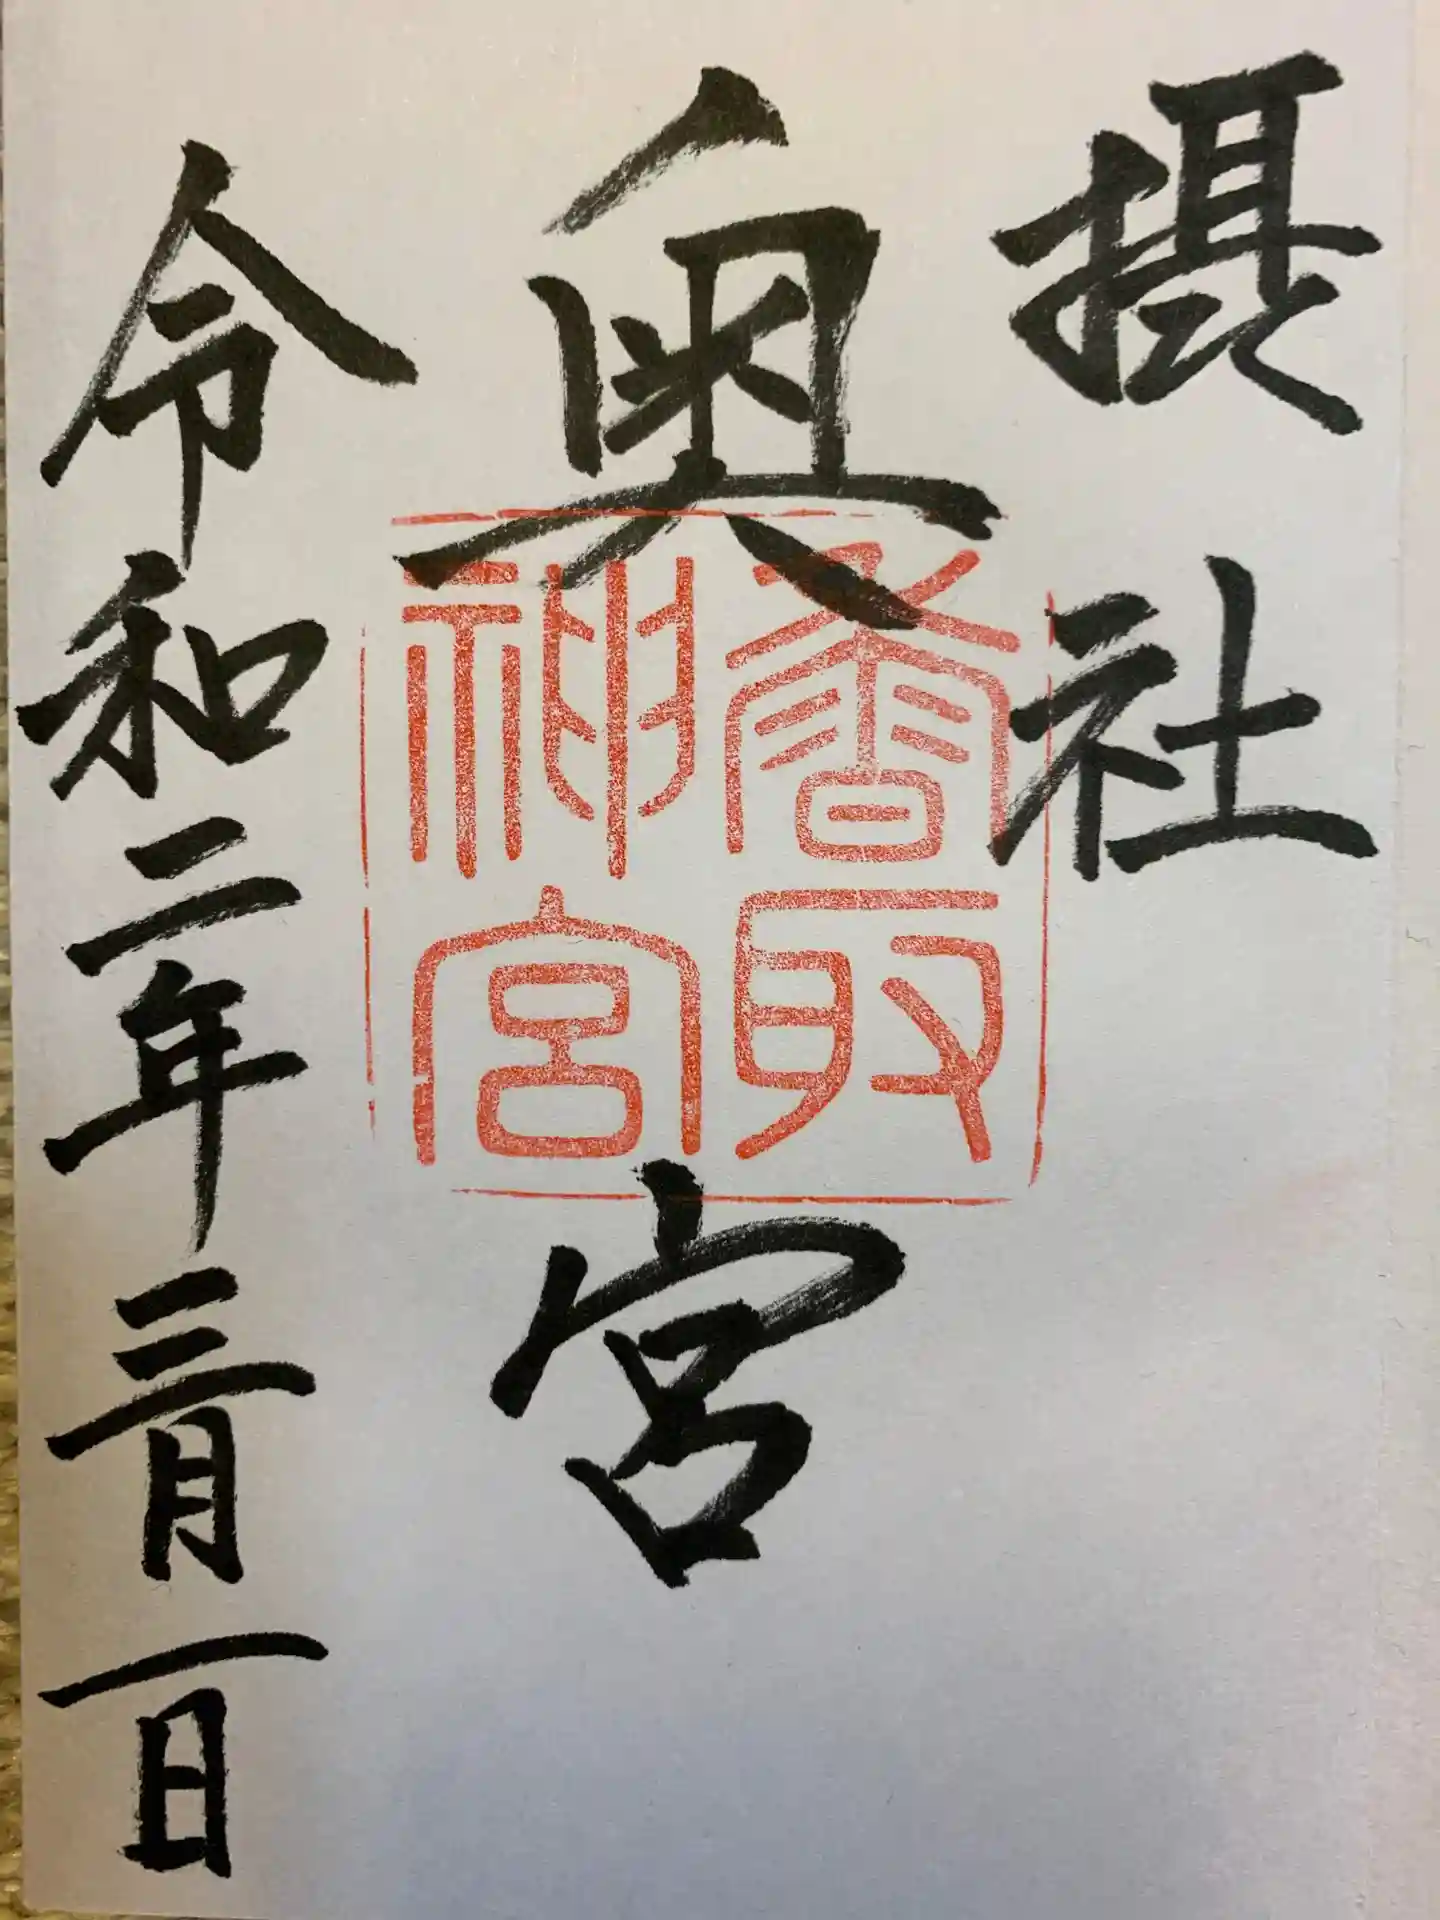 摂社
奥宮
香取
神宮
令和二年三月一日